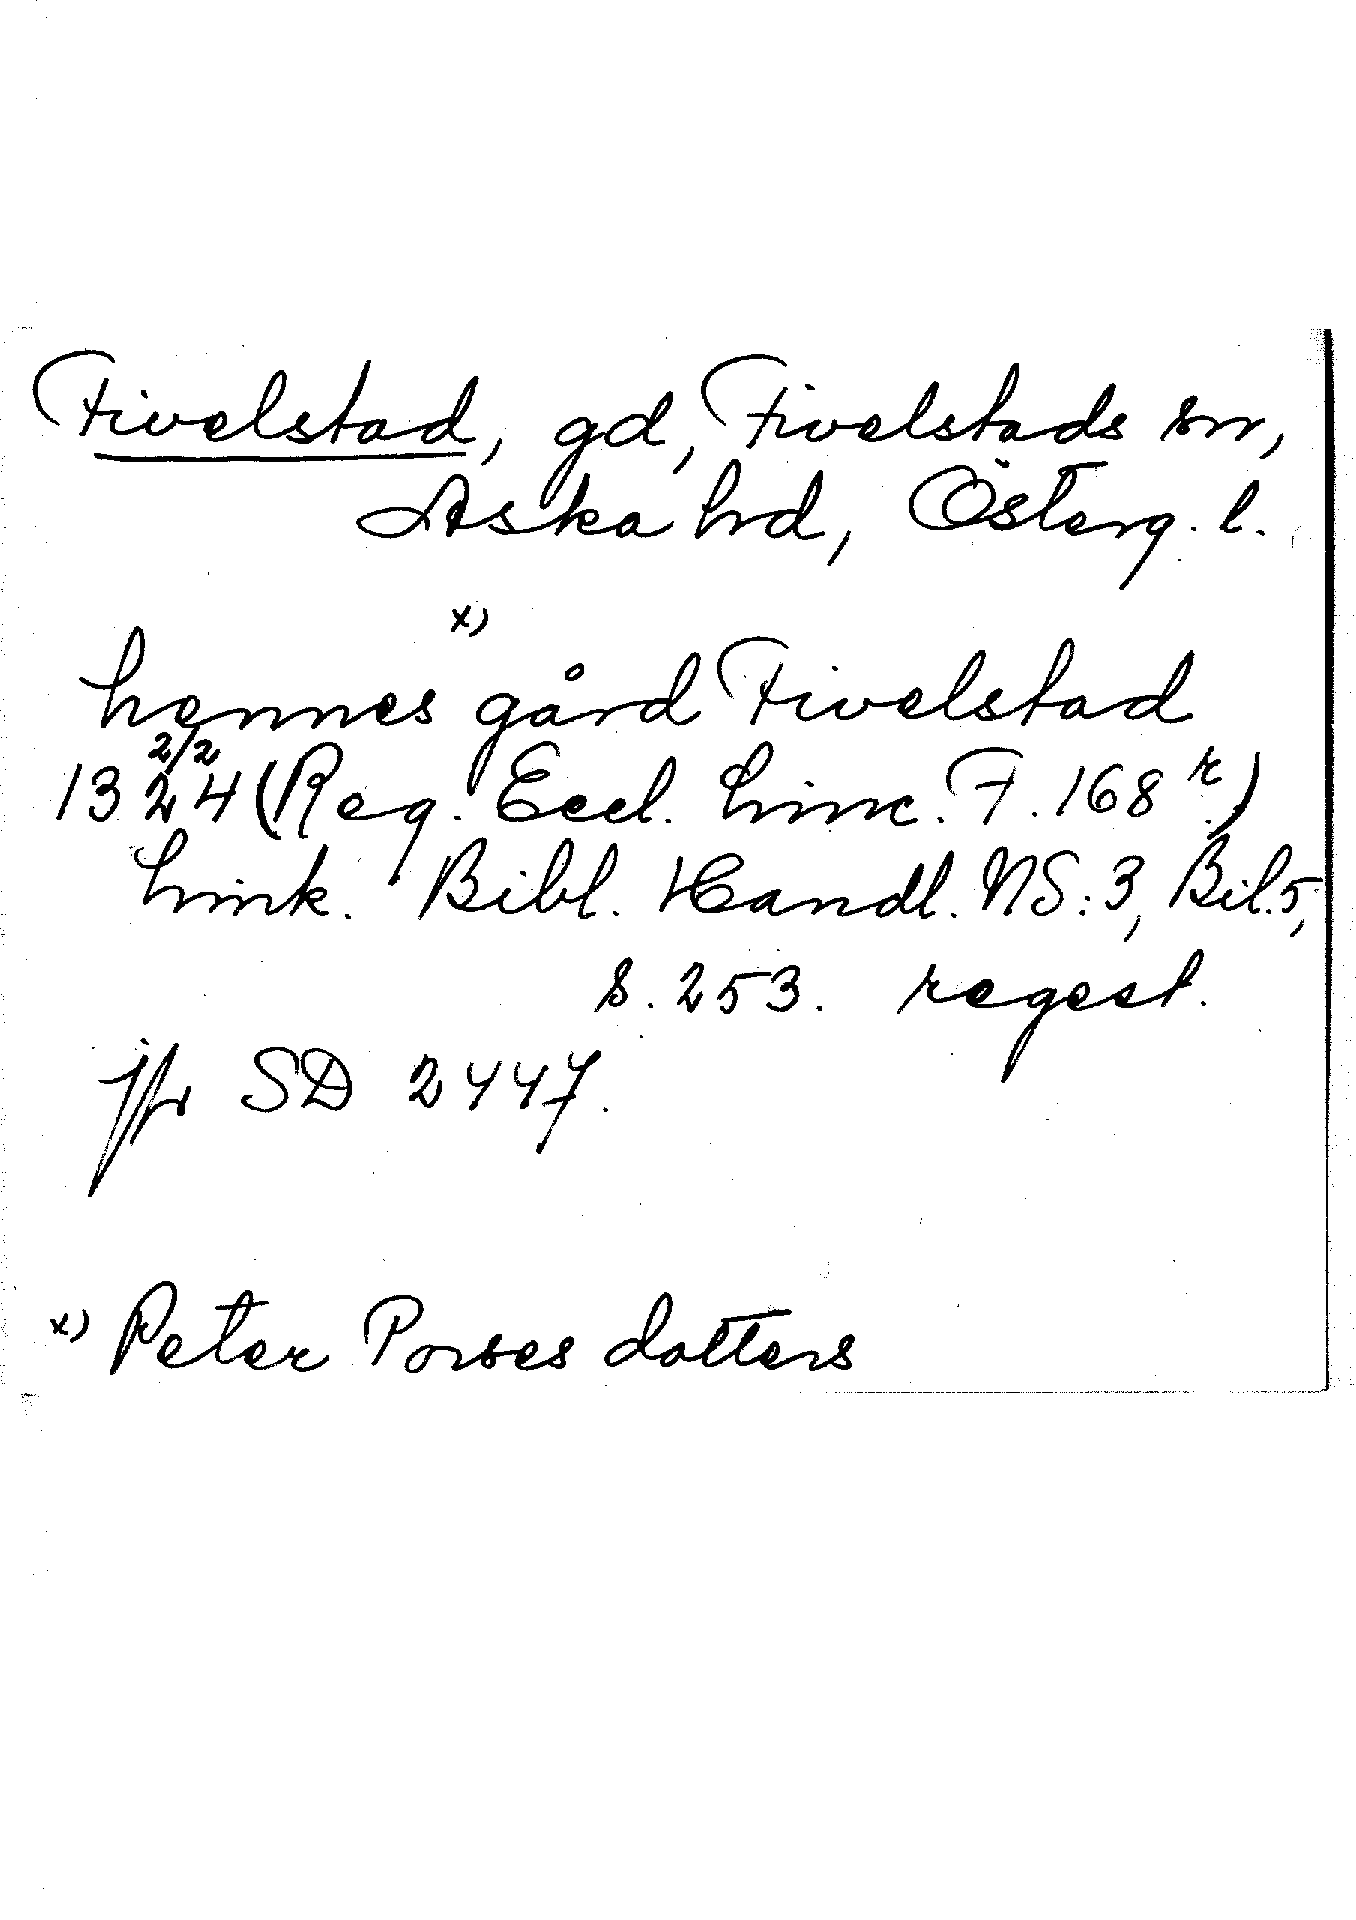 Fivelstad, gd, Fivelstads sn,
Aska hrd, Österg. l.
x)
hennes gård Fivelstad
2/2
1324 (Reg. Eccl. Linc. F. 168 r)
Link. Bibl. Handl. NS: 3, Bil. 5,
s. 253. regest.
jfr SD 2447.
x) Peter Porses dotters